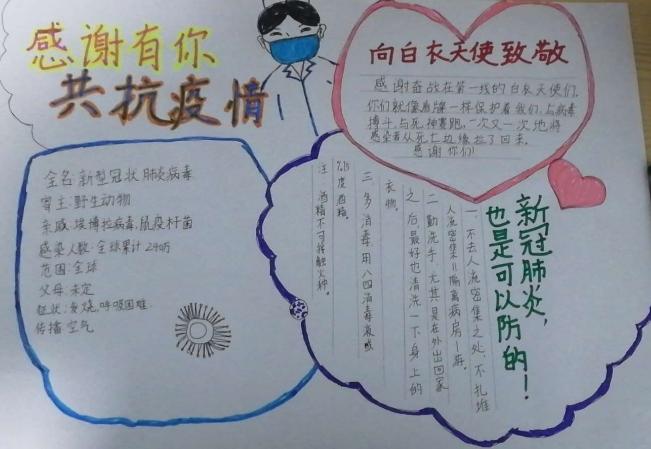 感谢有你
共抗疫情
向白衣天使致敬
感谢奋战在第一线的白衣天使们，
你们就像盾牌一样保护着我们，与病毒
搏斗，与死神赛跑，一次又一次地将
感染者从死亡边缘拉了回来，
感谢你们！
全名：新型冠状肺炎病毒
寄主：野生动物
亲戚：埃博拉病毒，鼠疫杆菌
感染人数：全球累计
范围：全球
父母：未定
症状：发烧，呼吸困难
传播：空气
新冠肺炎，
也是可以防的！
一、不去人流密集之处，不扎堆
人流密集=隔离病房一游。
二、勤洗手，尤其是在外出回家
之后最好也清洗一下身上的
衣物。
三、多消毒，用八四消毒液或
75度酒精。
注：酒精不可接触火种。